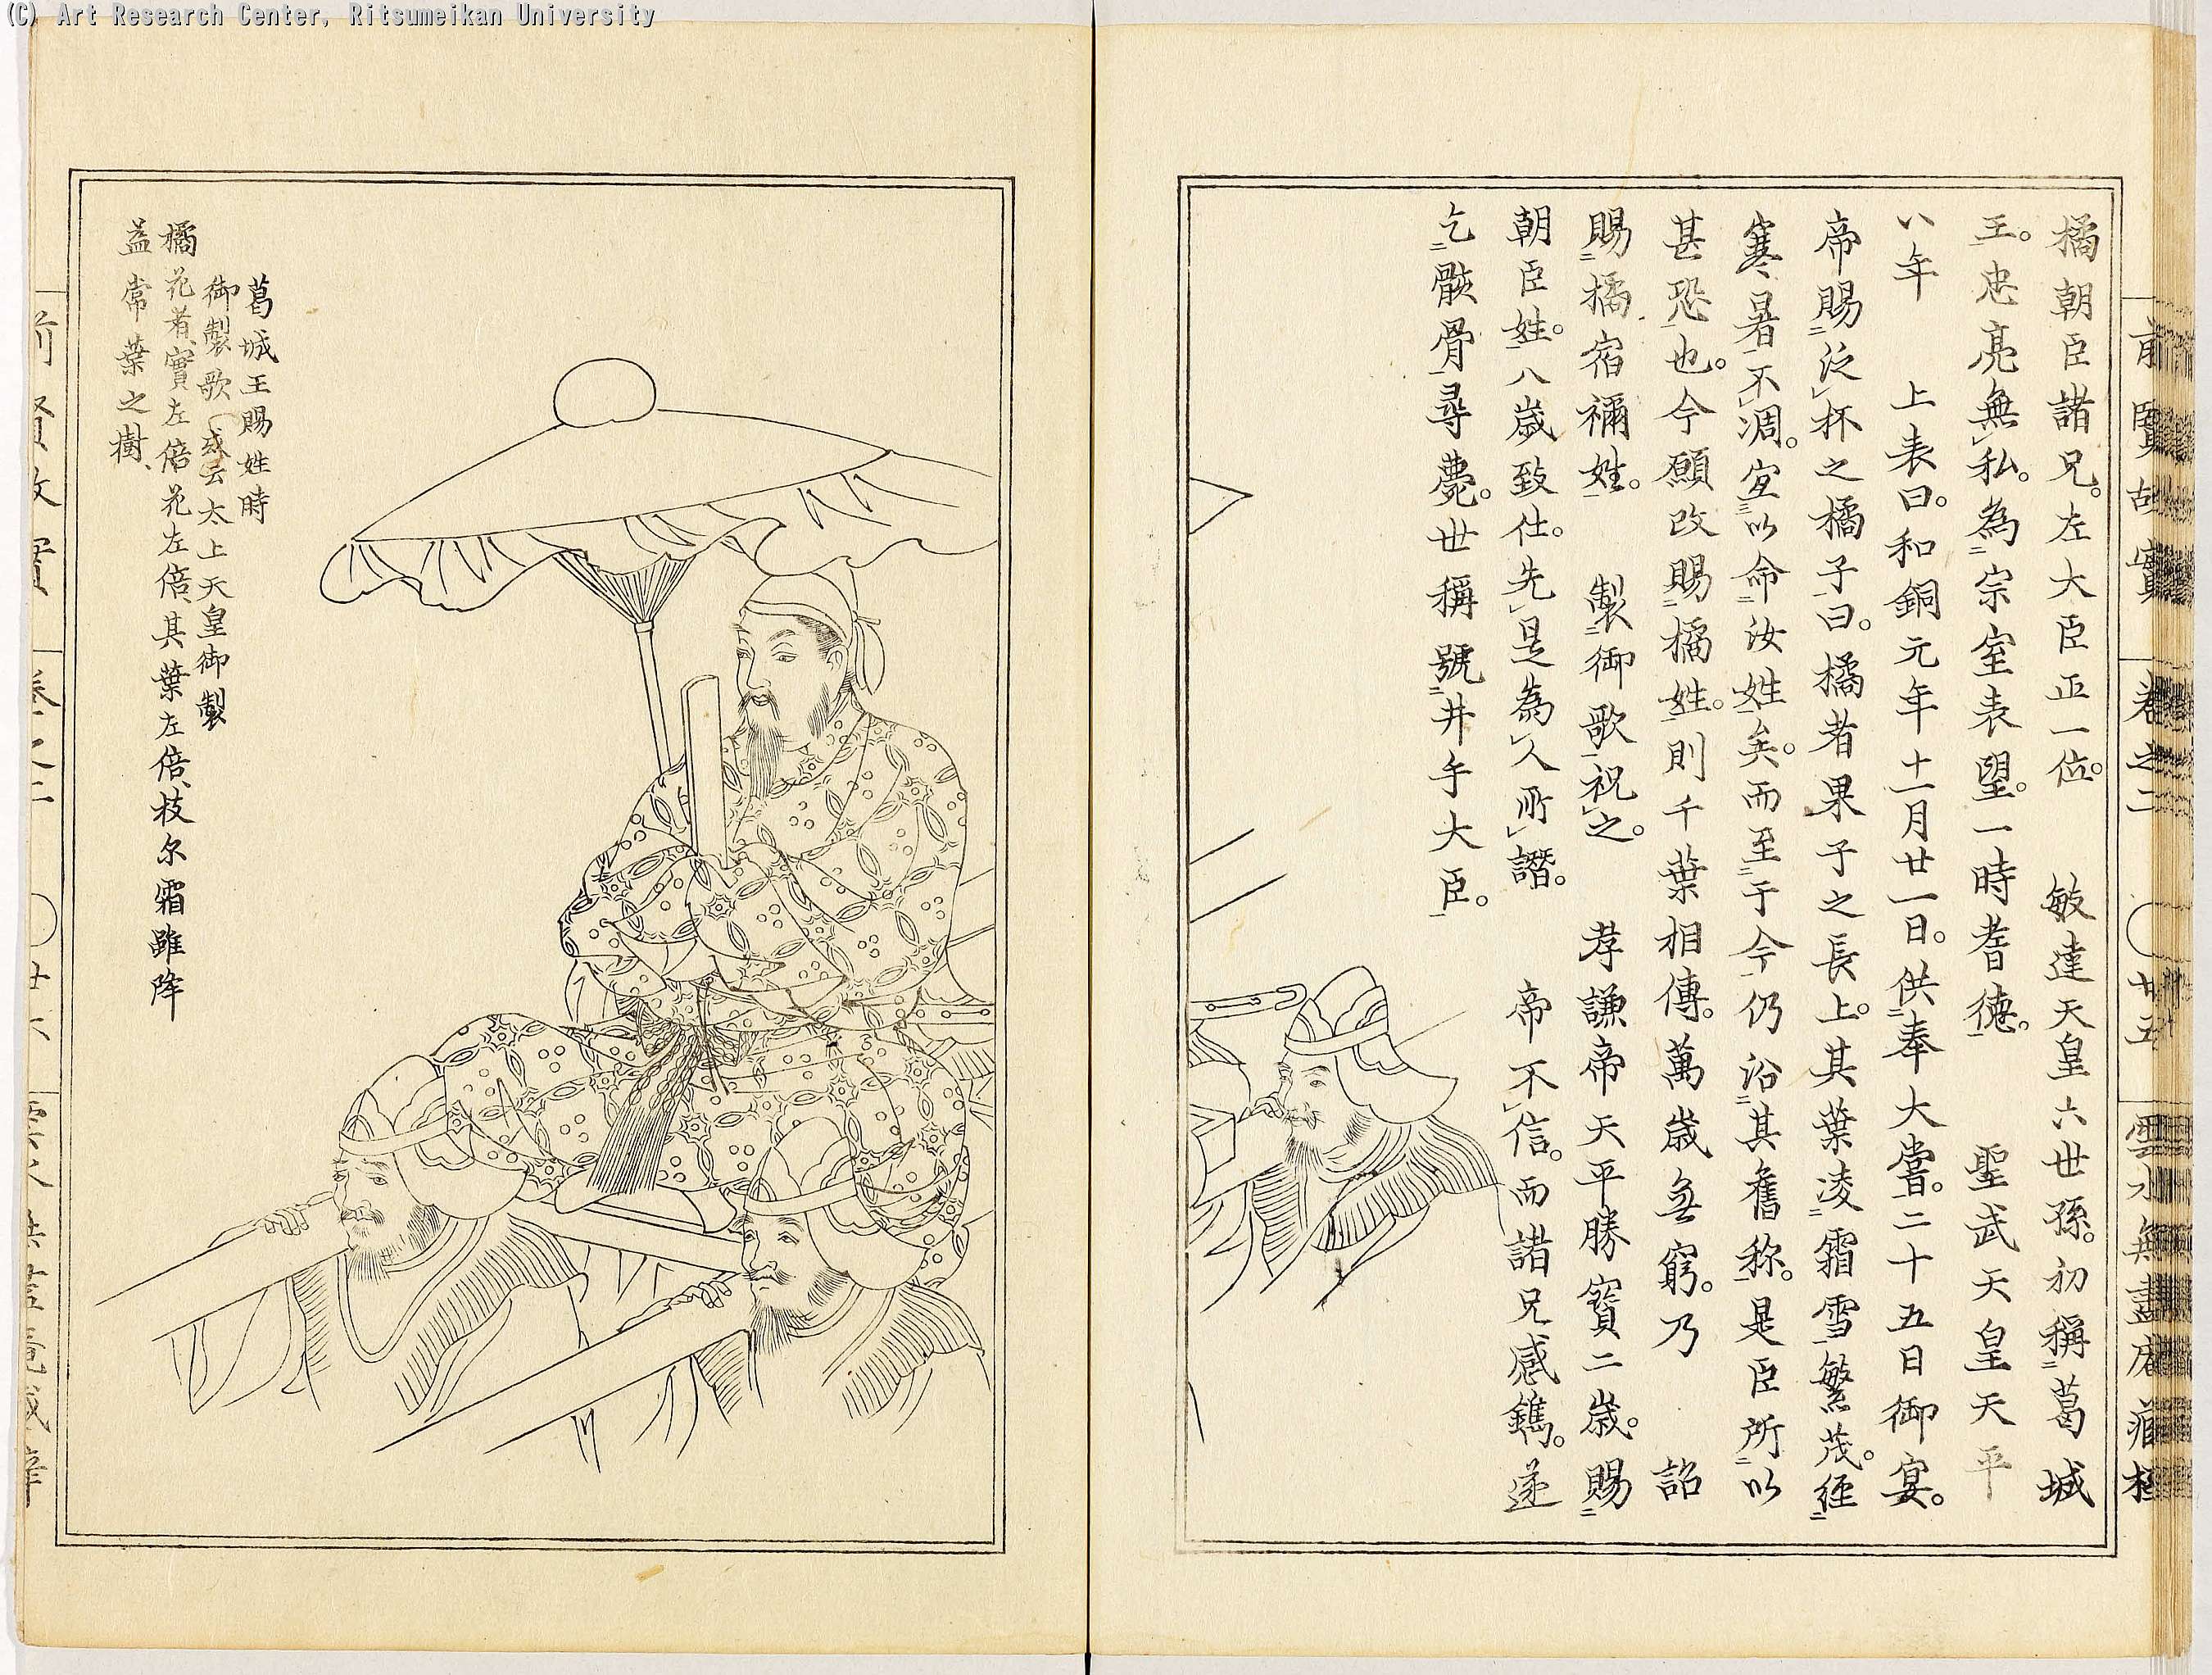 (C) Art Research Center, Ritsumeikan University
前賢故實 卷之二 〇 廿五
橘朝臣諸兄。左大臣正一位 敏達天皇六世孫。初稱葛城
王。忠亮無私。為宗室表望。一時耆徳。 聖武天皇天平
八年 上表曰。和銅元年十一月廿一日。供奉大嘗。二十五日御宴。
帝賜泛杯之橘子曰。橘者果子之長上。其葉凌霜雪繁茂。経
寒暑不凋。宜以命汝姓矣。而至于今仍沿其舊称。是臣所以
甚恐也。今願改賜橘姓。則千葉相傳。萬歳無窮。乃 詔
賜橘宿禰姓。 製御歌祝之。 孝謙帝天平勝寳二歳。賜
朝臣姓。八歳致仕。先是為人所譖。 帝不信。而諸兄感鐫。遂
乞骸骨尋薨。世稱號井手大臣。
葛城王賜姓時
御製歌 或云太上天皇御製
橘花者、實左倍花左倍、其葉左倍、枝尓霜雖降
益常葉之樹、
前賢故實